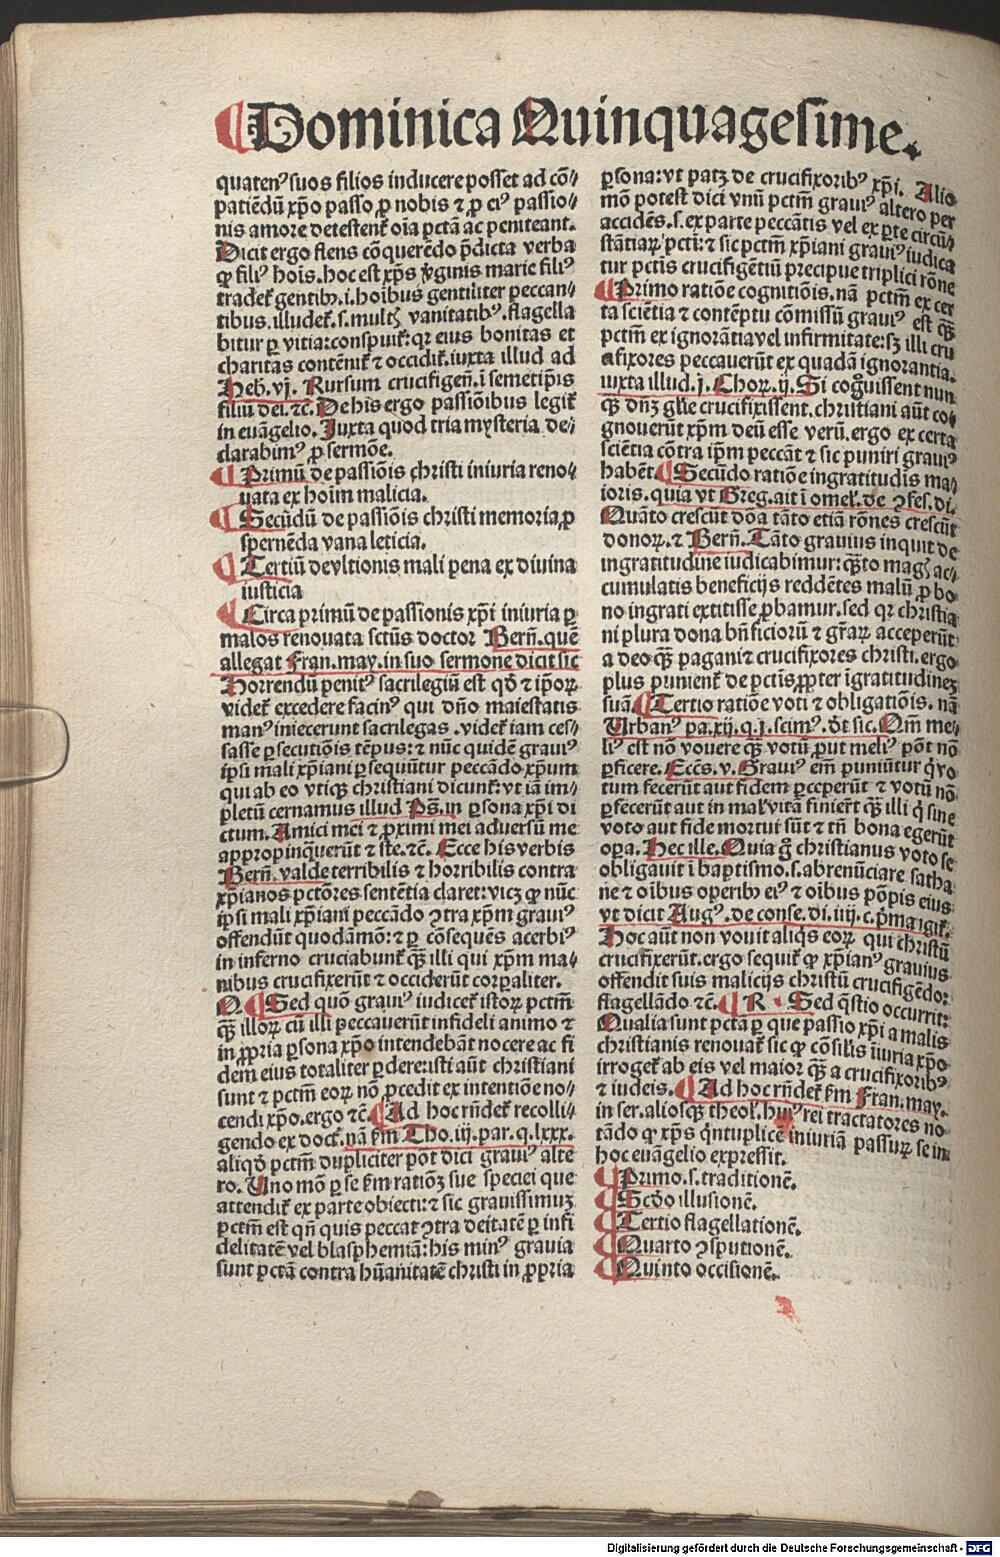 Dominica Quinquagesime.
quatenꝰ suos filios inducere posset ad cõ-
patiẽdũ xp̃o passo ꝓ nobis ⁊ ꝓ eiꝰ passio-
nis amore detestent̃ oĩa pctã ac peniteant.
Dicit ergo flens cõquerẽdo p̃dicta verba
ꝙ filiꝰ hoĩs. hoc est xp̃s v̓ginis marie filiꝰ
tradet̃ gentibꝫ .i. hoĩbus gentiliter peccan-
tibus. illudet̃ .s. multꝭ vanitatibꝰ. flagella
bitur ꝑ vitia: conspuit̃: qr eius bonitas et
charitas contẽnit̃ ⁊ occidit̃. iuxta illud ad
Heb. vj. Rursum crucifigeñ. ĩ semetip̃is
filiũ dei. ⁊c̃. De his ergo passiõibus legit̃
in euãgelio. Juxta quod tria mysteria de-
clarabimꝰ ꝓ sermõe.
Primũ de passiõis christi iniuria reno-
uata ex hoĩm malicia.
Secũdũ de passiõis christi memoria ꝓ
spernẽda vana leticia.
Tertiũ de vltionis mali pena ex diuina
iusticia
Circa primũ de passionis xp̃i iniuria ꝑ
malos renouata sctũs doctor Berñ. quẽ
allegat Fran. may. in suo sermone dicit sic
Horrendũ penitꝰ sacrilegiũ est qđ ⁊ ip̃oꝝ
videt̃ excedere facinꝰ qui dño maiestatis
manꝰ iniecerunt sacrilegas. videt̃ iam ces-
sasse ꝑsecutiõis tẽpus: ⁊ nũc quidẽ grauiꝰ
ip̃i mali xp̃iani ꝑsequũtur peccãdo xp̃um
qui ab eo vtiqꝫ christiani dicunt̃: vt iã im-
pletũ cernamus illud Ps̃. in ꝑsona xp̃i di
ctum. Amici mei ⁊ ꝓximi mei aduersũ me
appropinq̃uerũt ⁊ ste. ⁊c̃. Ecce his verbis
Berñ. valde terribilis ⁊ horribilis contra
xp̃ianos pctõres sentẽtia claret: vicꝫ ꝙ nũc
ip̃i mali xp̃iani peccãdo ꝯtra xp̃m grauiꝰ
offendũt quodãmõ: ⁊ ꝑ cõsequẽs acerbiꝰ
in inferno cruciabunt̃ qꝫ̃ illi qui xp̃m ma-
nibus crucifixerũt ⁊ occiderũt corꝑaliter.
Q. Sed quõ grauiꝰ iudicet̃ istoꝝ pctm̃
qꝫ̃ illoꝝ cũ illi peccauerũt infideli animo ⁊
in ꝓpria ꝑsona xp̃o intendebãt nocere ac fi
dem eius totaliter ꝑdere: isti aũt christiani
sunt ⁊ pctm̃ eoꝝ nõ ꝓcedit ex intentiõe no-
cendi xp̃o. ergo ⁊c̃. Ad hoc rñdet̃ recolli-
gendo ex doct̃. nã fm̃ Tho. iij. par. q. lxxx.
aliqđ pctm̃ dupliciter põt dici grauiꝰ alte
ro. Uno mõ ꝑ se fm̃ ratiõꝫ sue speciei que
attendit̃ ex parte obiecti: ⁊ sic grauissimuꝫ
pctm̃ est qñ quis peccat ꝯtra deitatẽ ꝑ infi
delitatẽ vel blasphemiã: his minꝰ grauia
sunt pctã contra hũanitatẽ christi in ꝓpria
ꝑsona: vt patꝫ de crucifixoribꝰ xp̃i. Alio
mõ potest dici vnũ pctm̃ grauiꝰ altero per
accidẽs .s. ex parte peccãtis vel ex ꝑte circũ-
stãtiaꝝ pcti: ⁊ sic pctm̃ xp̃iani grauiꝰ iudica
tur pctis crucifigẽtiũ precipue triplici rõne
Primo ratiõe cognitiõis. nã pctm̃ ex cer
ta sciẽtia ⁊ contẽptu cõmissũ grauiꝰ est qꝫ̃
pctm̃ ex ignorãtia vel infirmitate: sꝫ illi cru
cifixores peccauerũt ex quadã ignorantia.
iuxta illud .j. Choꝝ. ij. Si cog̃uissent nun
qꝫ̃ dñꝫ gl̃ie crucifixissent. christiani aũt co-
gnouerũt xp̃m deũ esse verũ. ergo ex certa
sciẽtia cõtra ip̃m peccãt ⁊ sic puniri grauiꝰ
habẽt. Secũdo ratiõe ingratitudis ma-
ioris. quia vt Greg. ait ĩ omel̃. de ꝯfes. di.
Quãto crescũt dõa tãto etiã rõnes crescũt
donoꝝ. ⁊ Berñ. Tãto grauius inquit de
ingratitudine iudicabimur: qꝫ̃to magꝭ ac-
cumulatis beneficijs reddẽtes malũ ꝓ bo
no ingrati extitisse ꝓbamur. sed qr christia
ni plura dona bñficiorũ ⁊ gr̃aꝝ acceperũt
a deo qꝫ̃ pagani ⁊ crucifixores christi. ergo
plus punient̃ de pctis ꝓpter ĩgratitudineꝫ
suã. Tertio ratiõe voti ⁊ obligatiõis. nã
Urbanꝰ pa. xij. q. j. scimꝰ. đt sic. Om̃ me-
liꝰ est nõ vouere qꝫ̃ votũ ꝓut meliꝰ põt nõ
ꝑficere. Eccs̃. v. Grauiꝰ em̃ puniũtur q̓ vo
tum fecerũt aut fidem ꝑceperũt ⁊ votũ nõ
ꝑfecerũt aut in mal̃ vitã finier̃t qꝫ̃ illi q̓ sine
voto aut fide mortui sũt ⁊ tñ bona egerũt
opa. Hec ille. Quia g̃ christianus voto se
obligauit ĩ baptismo .s. abrenũciare satha
ne ⁊ oĩbus operibꝫ eiꝰ ⁊ oĩbus põpis eius
vt dicit Augꝰ. de conse. di. iiij. c. p̃ma igit̃.
Hoc aũt non vouit aliq̓s eoꝝ qui christũ
crucifixerũt. ergo sequit̃ ꝙ xp̃ianꝰ grauius
offendit suis malicijs christũ crucifigẽdo:
flagellãdo ⁊c̃. R. Sed q̃stio occurrit:
Qualia sunt pctã ꝑ que passio xp̃i a malis
christianis renouat̃ sic ꝙ cõsil̃is ĩiuria xp̃o
irroget̃ ab eis vel maior qꝫ̃ a crucifixoribꝰ
⁊ iudeis. Ad hoc rñdet̃ fm̃ Fran. may.
in ser. aliosqꝫ theol̃. huiꝰ rei tractatores no-
tãdo ꝙ xp̃s q̓ntuplicẽ iniuriã passuꝝ se in
hoc euãgelio expressit.
Primo .s. traditionẽ.
Scđo illusionẽ.
Tertio flagellationẽ.
Quarto ꝯsputionẽ.
Quinto occisionẽ.
Digitalisierung gefördert durch die Deutsche Forschungsgemeinschaft - DFG